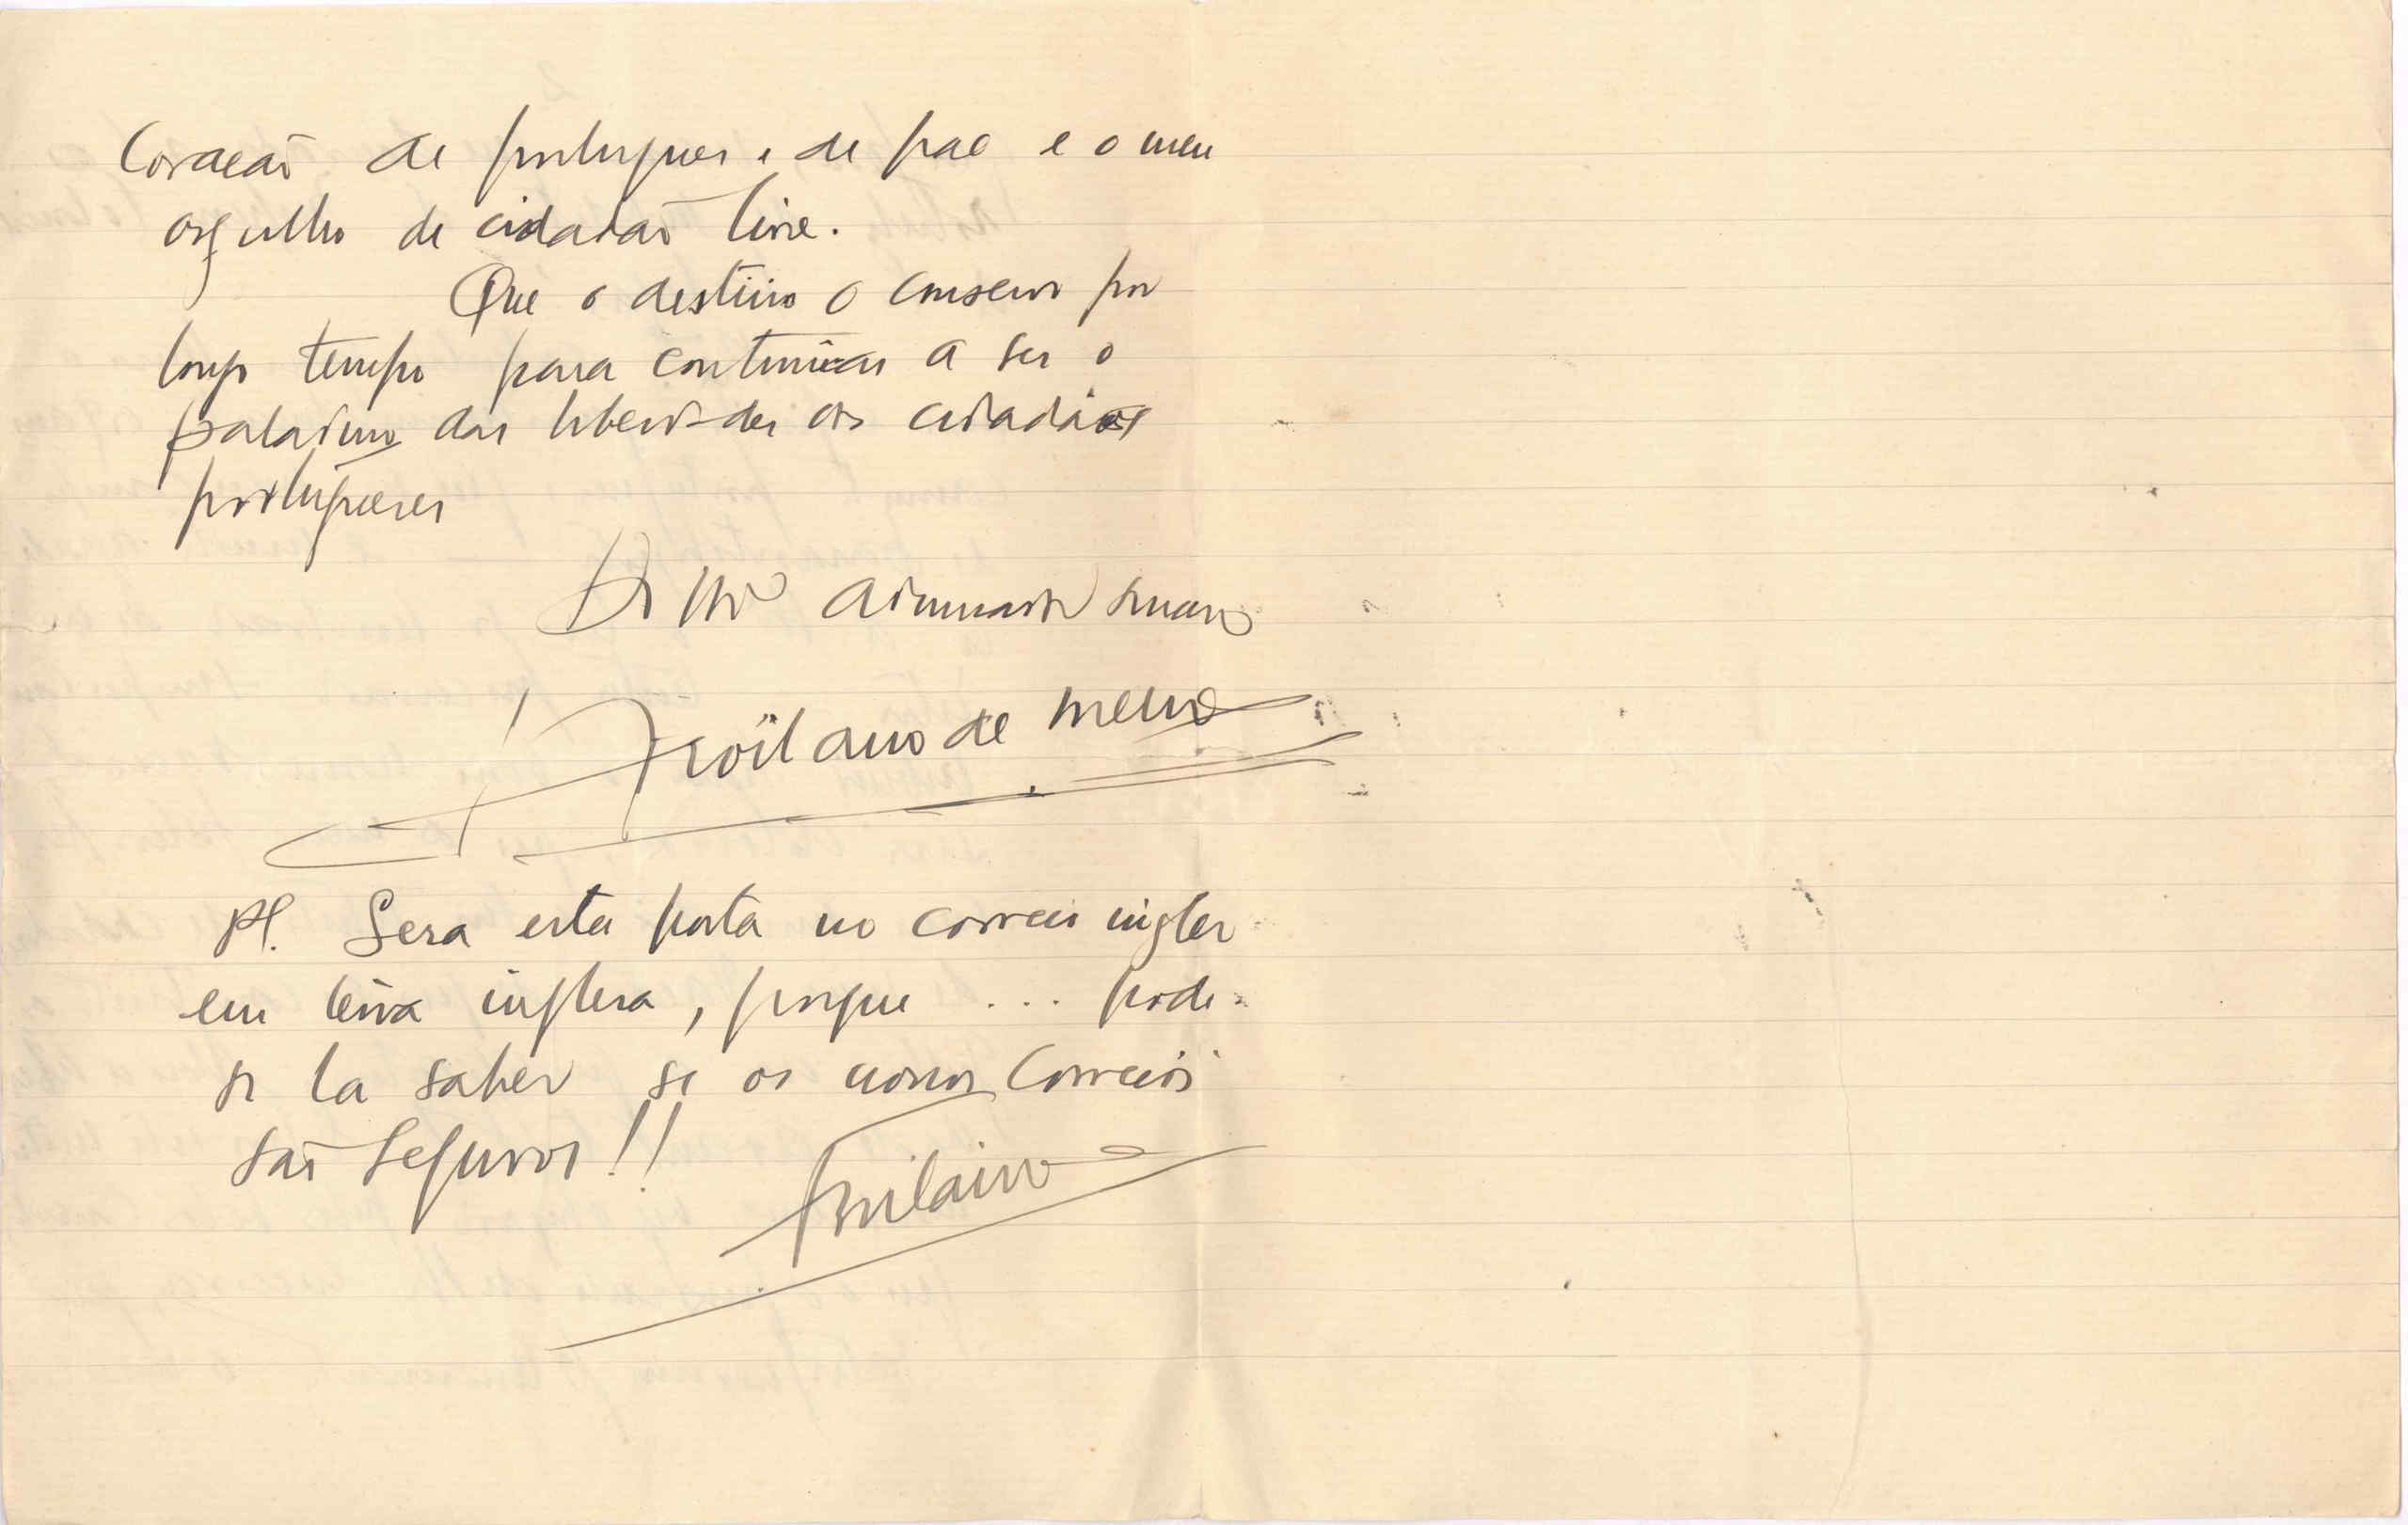 Coração de portugues e de pae e o meu
orgulho de cidadão livre.
Que o destino o conserve por
longo tempo para continuar a ser o
paladino das liberdades dos cidadãos
portugueses
De V. admirador sincero
Froïlano de Mello
PS. Sera esta posta no correio ingles
em terra inglesa, porque ... pode-
se la saber se os nossos Correios
são seguros!!
Froilano